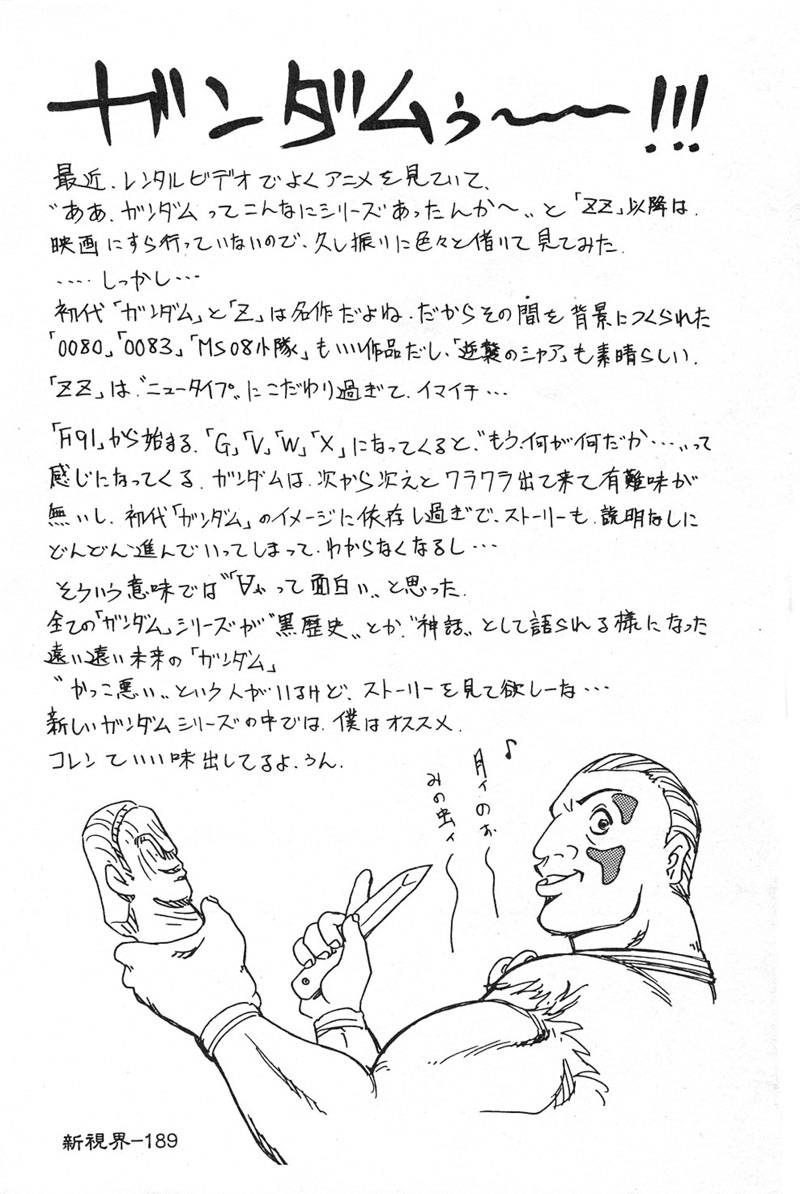 ガンダムぅ〜〜!!!
最近、レンタルビデオでよくアニメを見ていて、
“ああ、ガンダムってこんなにシリーズあったんか〜„と「ZZ」以降は、
映画にすら行っていないので、久し振りに色々と借りて見てみた.
‥‥しっかし…
初代「ガンダム」と「Z」は名作だよね.だからその間を背景につくられた
「0080」「0083」「MS08小隊」もいい作品だし、「逆襲のシャア」も素晴らしい.
「ZZ」は“ニュータイプ„にこだわり過ぎて、イマイチ…
「F91」から始まる、「G」「V」「W」「X」になってくると、“もう、何が何だか…„って
感じになってくる、ガンダムは、次から次えとワラワラ出て来て有難味が
無いし、初代「ガンダム」のイメージに依存し過ぎで、ストーリーも、説明なしに
どんどん進んでいってしまって、わからなくなるし…
そういう意味では“∀って面白い„と思った.
全ての「ガンダム」シリーズが“黒歴史„とか、“神話„として語られる様になった
遠い遠い未来の「ガンダム」
“かっこ悪い„という人がいるけど、ストーリーを見て欲しーな…
新しいガンダムシリーズの中では、僕はオススメ.
コレンていい味出してるよ、うん.
♪
月ィのぉ〜
みの虫ィ〜
新視界-189